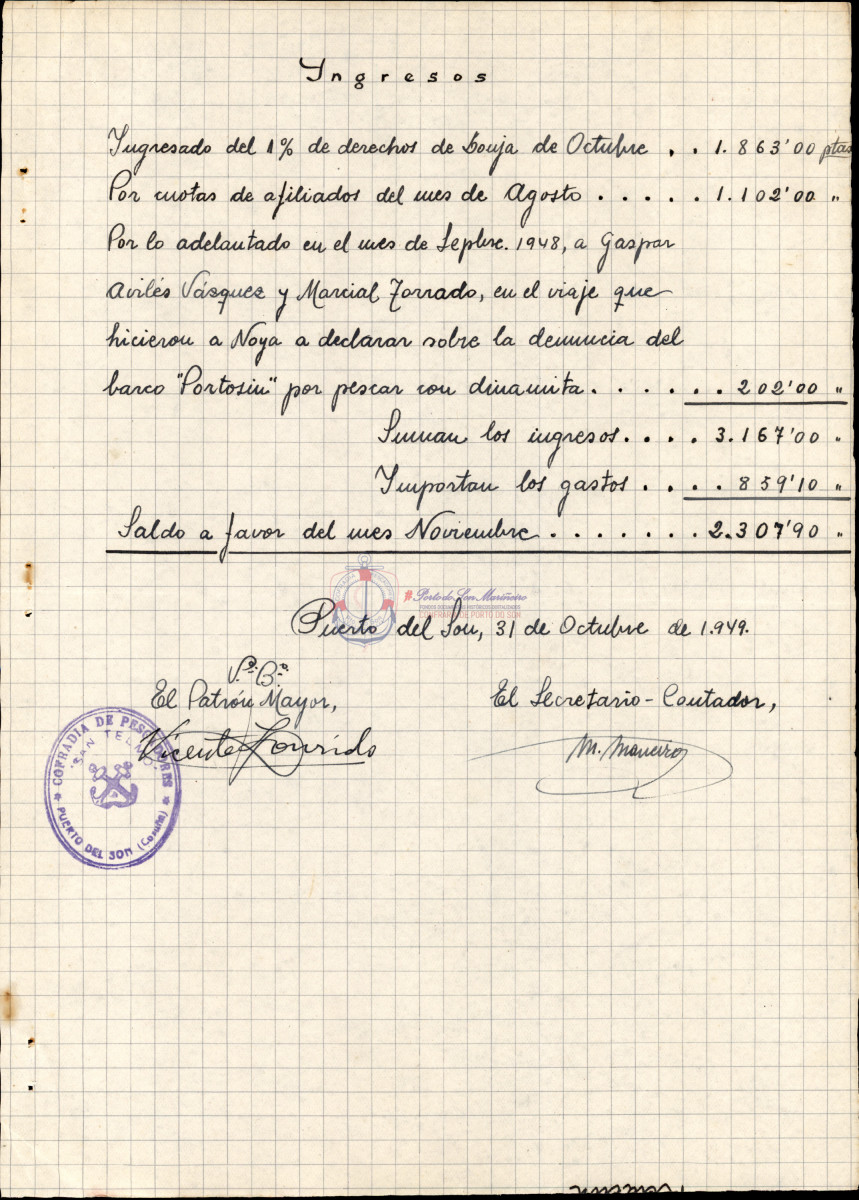 Yngresos
Yngresado del 1% de derechos de Lonja de Octubre . . 1.863'00 ptas
Por cuotas de afiliados del mes de Agosto . . . . . 1.102'00 "
Por lo adelantado en el mes de Sepbre. 1948, a Gaspar
Avilés Vázquez y Marcial Torrado, en el viaje que
hicieron a Noya a declarar sobre la denuncia del
barco "Portosin" por pescar con dinamita . . . . . . 202'00 "
Suman los ingresos . . . . 3.167'00 "
Ymportan los gastos . . . . 859'10 "
Saldo a favor del mes Noviembre . . . . . . . 2.307'90 "
#Porto do Son Mariñeiro
CONFRARÍA DE PORTO DO SON
Puerto del Son, 31 de Octubre de 1.949.
Vº. Bº.
El Patrón Mayor,
El Secretario-Contador,
Vicente Lourido
M. Maneiro
COFRADIA DE PESCADORES
"SAN TELMO"
PUERTO DEL SON (Coruña)